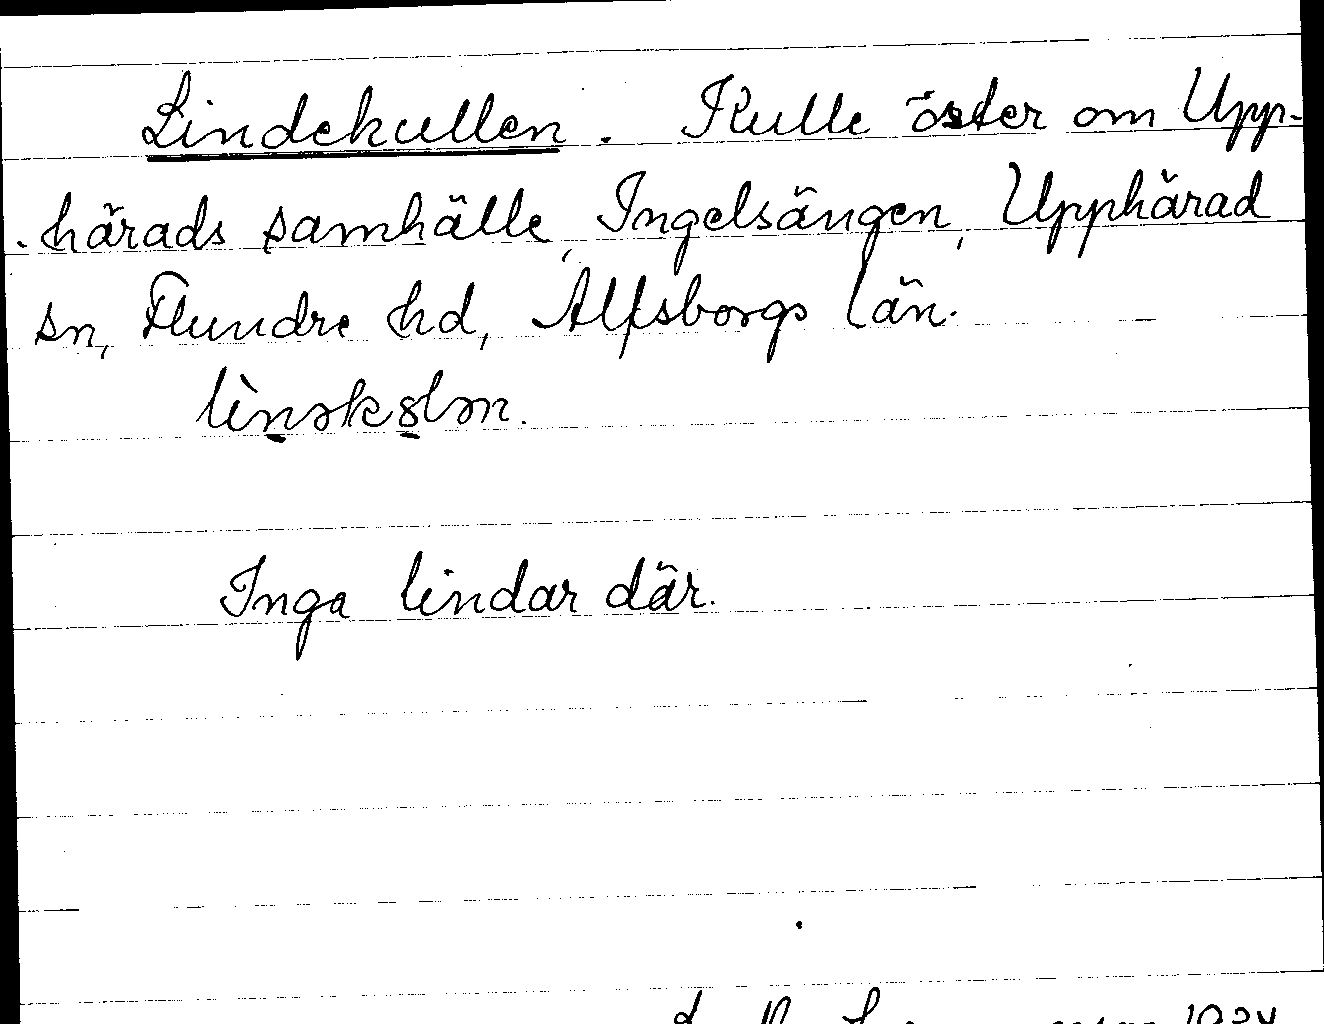 Lindekullen. Kulle öster om Upp-
härads samhälle, Ingelsängen, Upphärad
sn, Flundre hd, Älfsborgs län.
Inga lindar där.